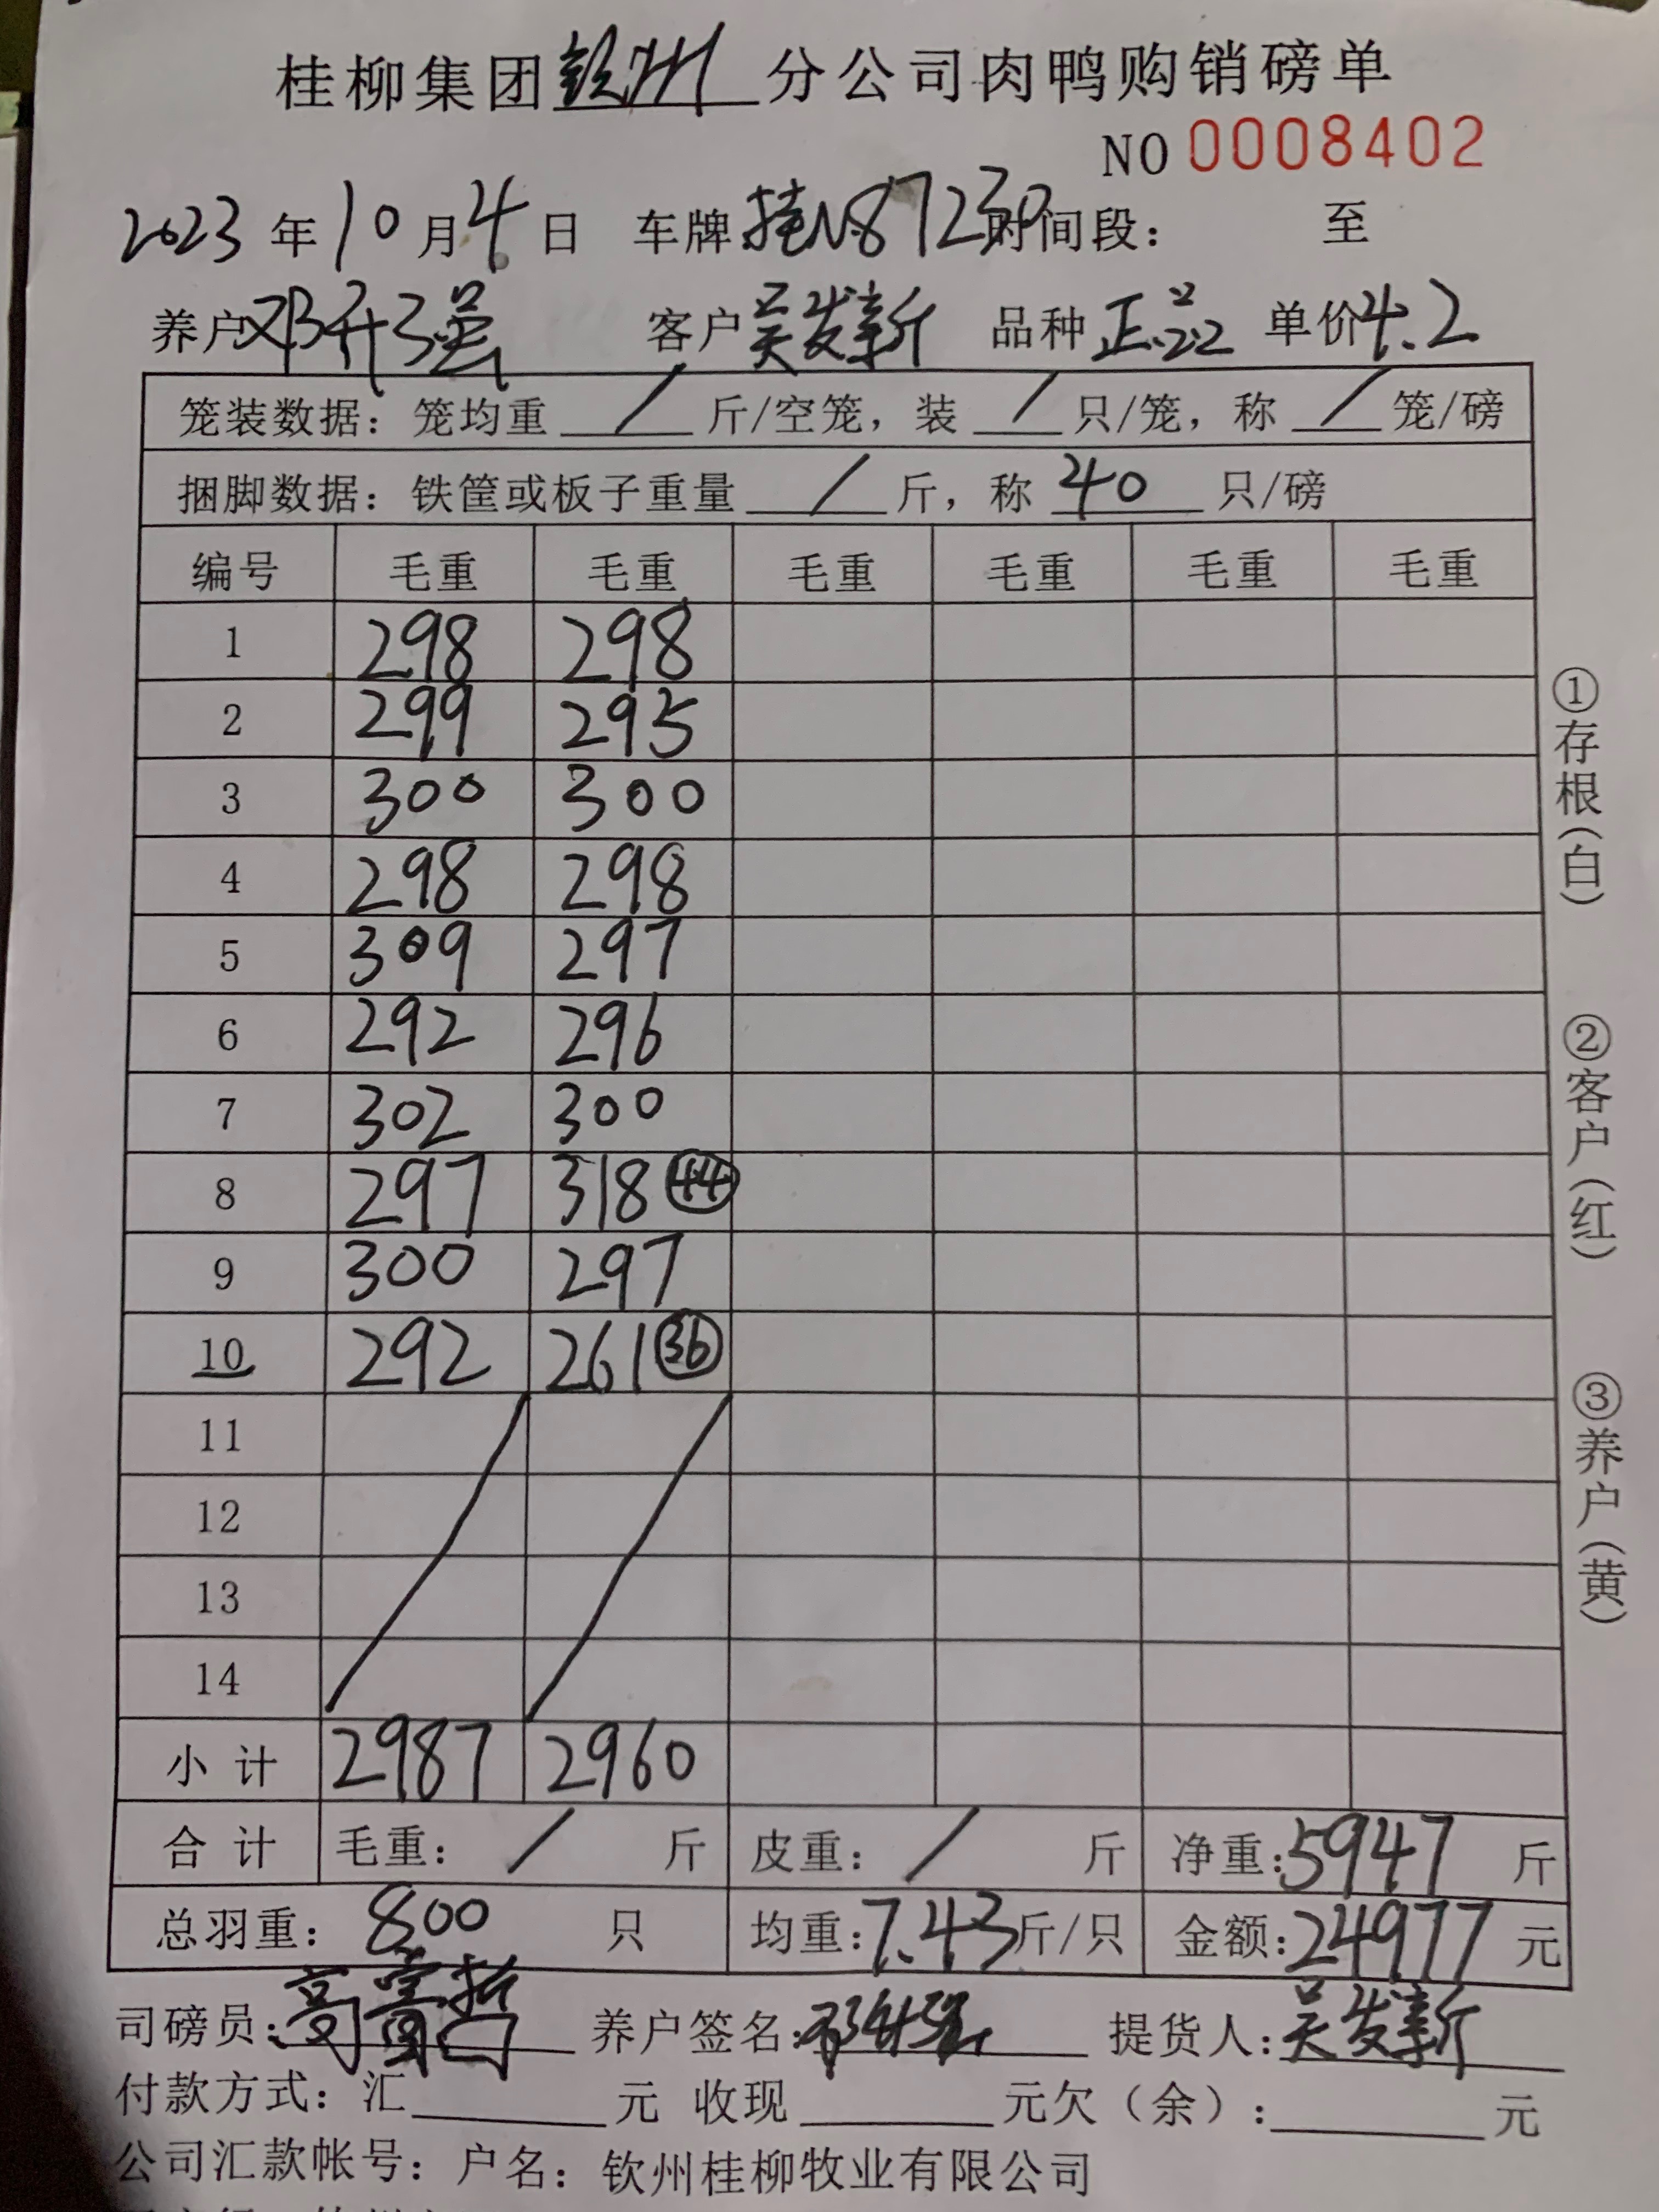 桂柳集团钦州分公司肉鸭购销磅单
NO 0008402
2023年10月4日 车牌:桂N87230时间段: 至
养户邓升强 客户吴发新 品种正品 单价4.2
笼装数据: 笼均重 / 斤/空笼, 装 / 只/笼, 称 / 笼/磅
捆脚数据: 铁筐或板子重量 / 斤, 称 40 只/磅
编号 毛重 毛重 毛重 毛重 毛重 毛重
1 298 298
2 299 295
3 300 300
4 298 298
5 309 297
6 292 296
7 302 300
8 297 318 44
9 300 297
10 292 261 36
11
12
13
14
小计 2987 2960
合计 毛重: / 斤 皮重: / 斤 净重:5947 斤
总羽重: 800 只 均重:7.43斤/只 金额:24977 元
司磅员: 养户签名:邓升强 提货人:吴发新
付款方式: 汇 元 收现 元欠(余): 元
公司汇款帐号: 户名: 钦州桂柳牧业有限公司
①存根(白)
②客户(红)
③养户(黄)